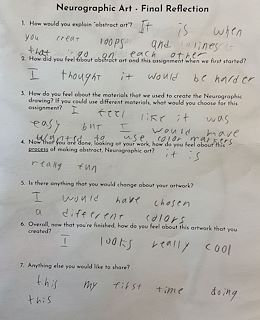 Neurographic Art - Final Reflection
1. How would you explain "abstract art"? It is when
you creat loops and lines
that go on each other
2. How did you feel about abstract art and this assignment when we first started?
I thought it would be harder
3. How do you feel about the materials that we used to create the Neurographic
drawing? If you could use different materials, what would you choose for this
assignment? I feel like it was
easy but I would have
wanted to use color markers
4. Now that you are done, looking at your work, how do you feel about this
process of making abstract, Neurographic art? it is
really fun
5. Is there anything that you would change about your artwork?
I would have chosen
a differene colors
6. Overall, now that you're finished, how do you feel about this artwork that you
created?
I looks really cool
7. Anything else you would like to share?
this my first time doing
this